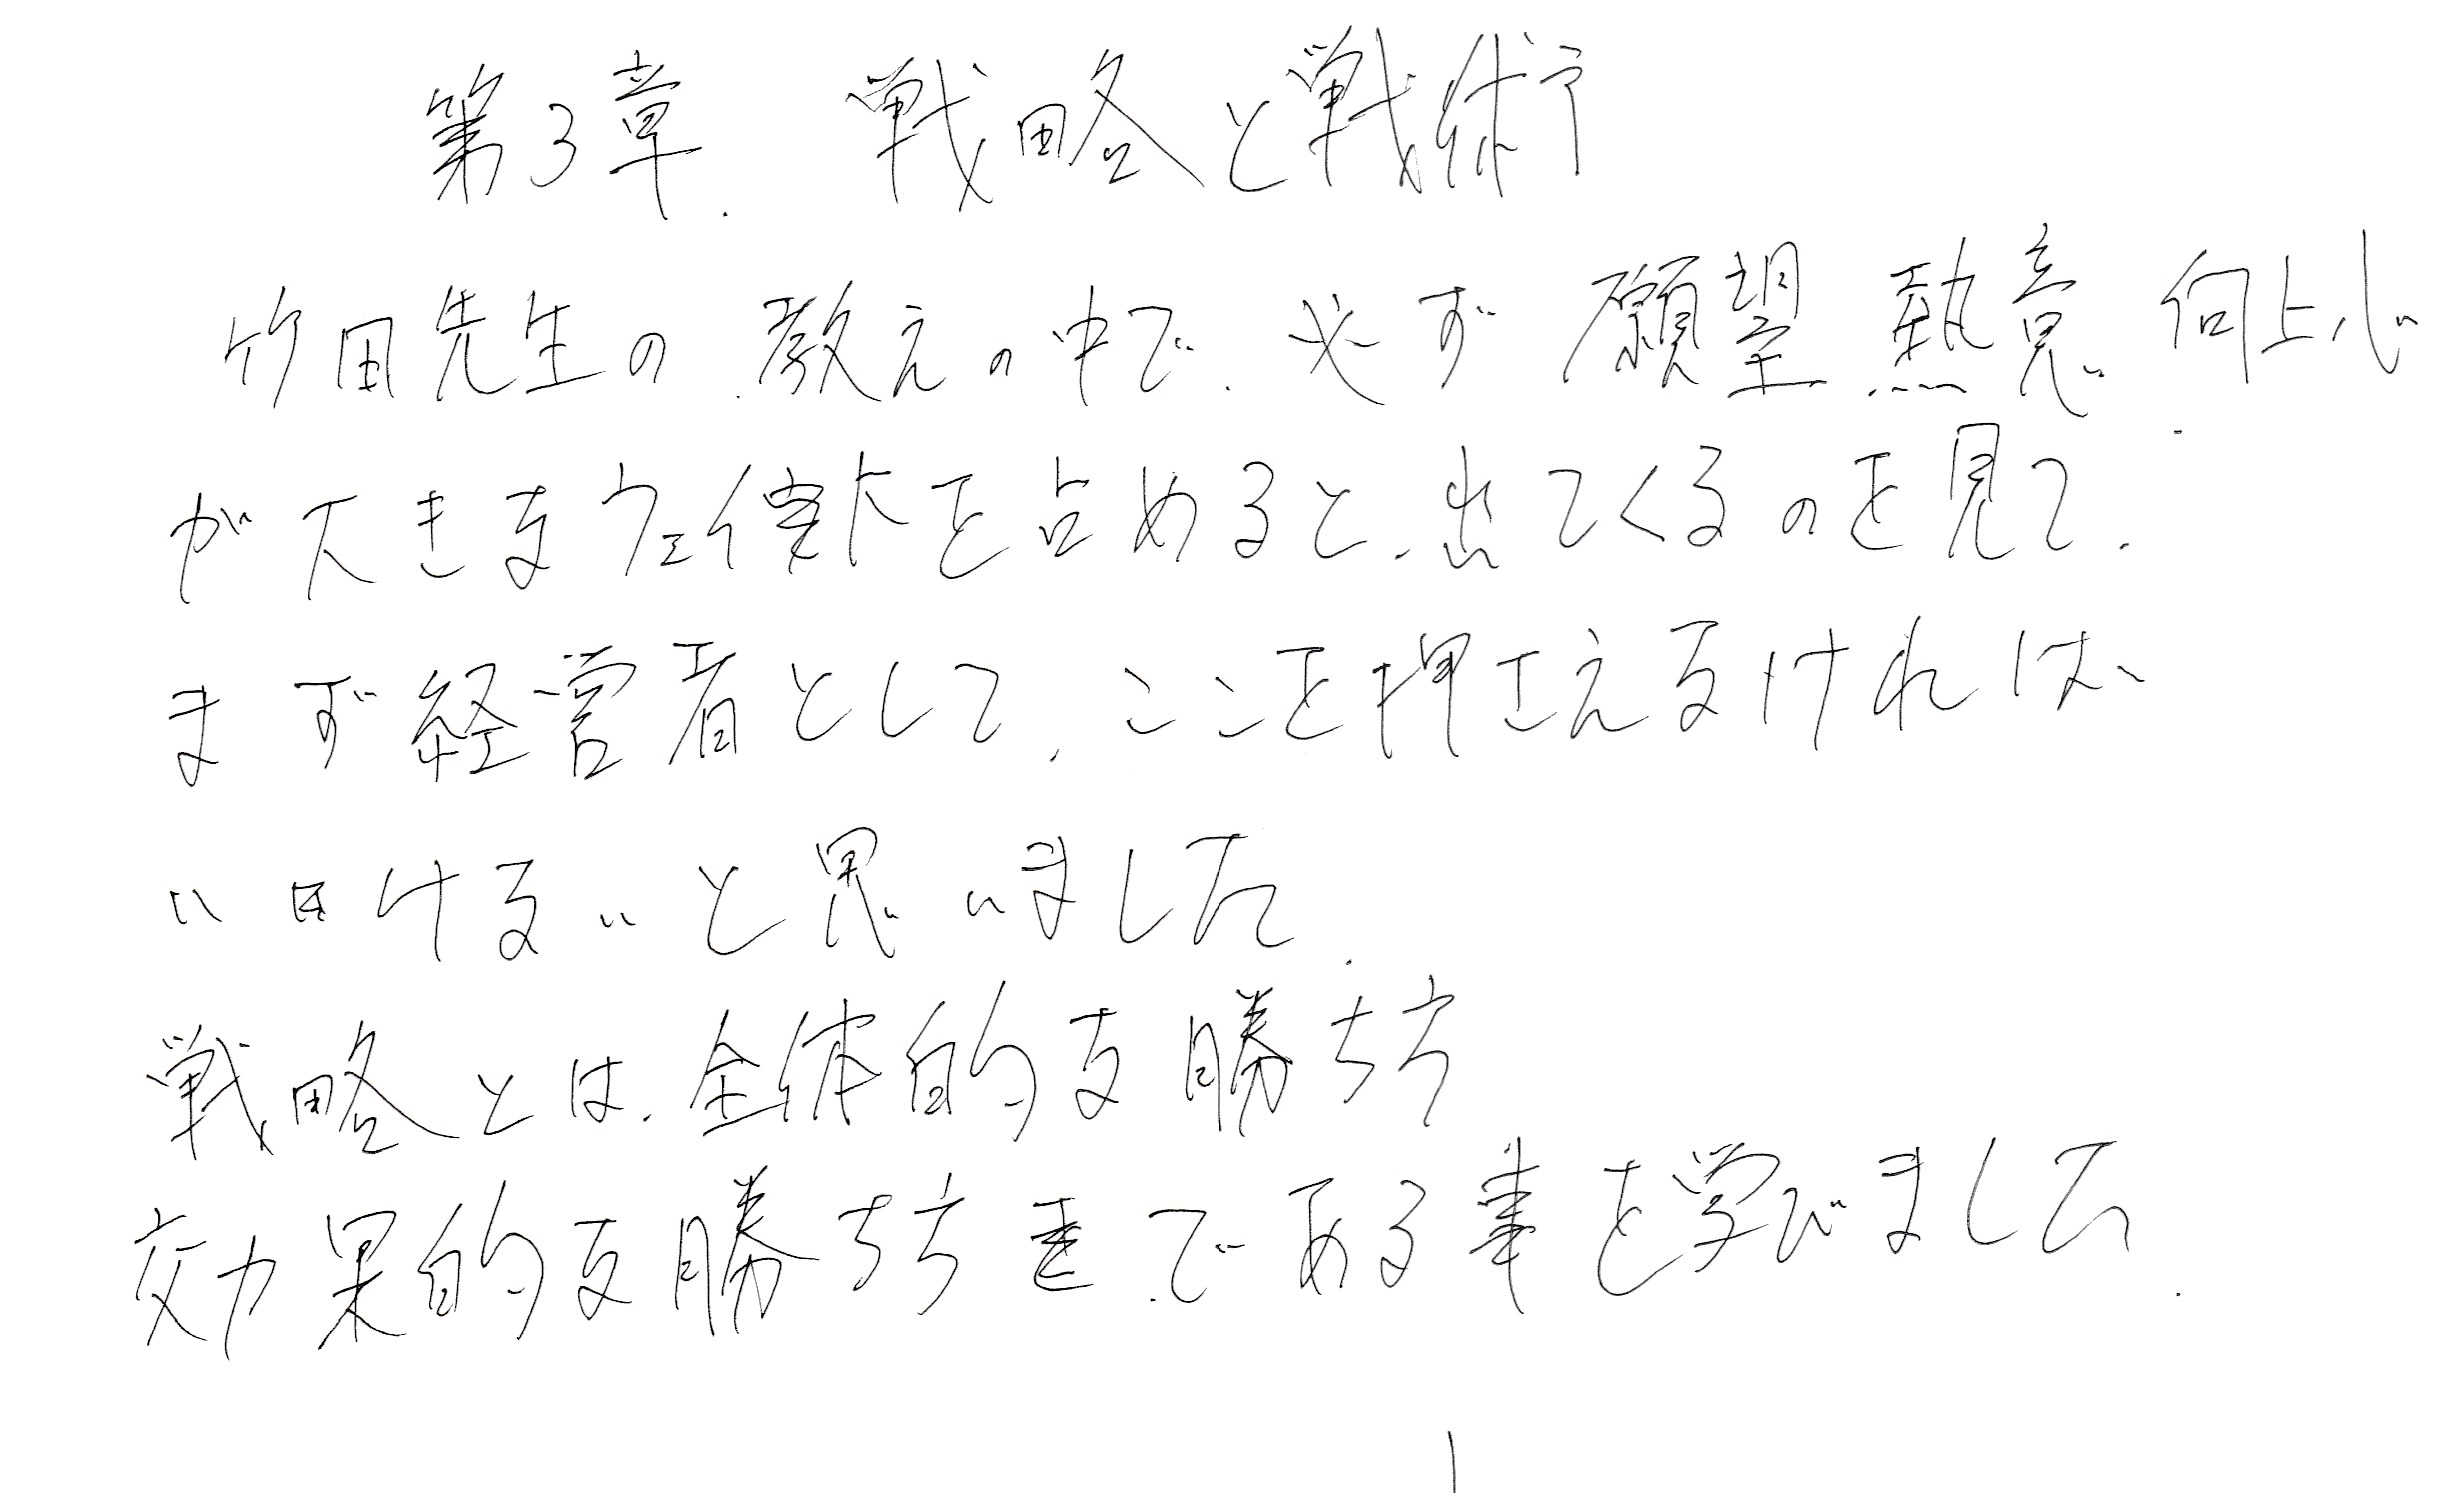 第3章. 戦略と戦術
竹田先生の.教えの中で.必ず 願望 熱意.向上心
が大きなウェイトを占めると.出てくるのを見て.
まず経営者として.ここを押さえなければ
いけないと思いました.
戦略とは.全体的な勝ち方
効果的な勝ち方.である事を学びました.